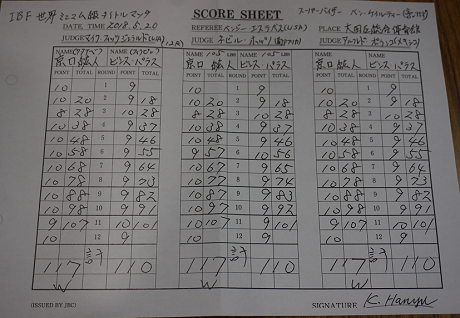 IBF 世界ミニマム級タイトルマッチ SCORE SHEET スーパーバイザー ベン・ケイルティー
DATE, TIME 2018.5.20 REFEREE ベンジー・エステベス(USA) PLACE 大田区総合体育館
JUDGE マイク・フィッツジェラルド(USA) JUDGE JUDGE アルフレド・ポランコ(メキシコ)
NAME NAME NAME 105 LBS NAME 105 LBS NAME NAME
京口 紘人 ビンス・パラス 京口 紘人 ビンス・パラス 京口 紘人 ビンス・パラス
POINT TOTAL ROUND POINT TOTAL POINT TOTAL ROUND POINT TOTAL POINT TOTAL ROUND POINT TOTAL
10 1 9 10 1 9 10 1 9
10 20 2 9 18 10 20 2 9 18 10 20 2 9 18
8 28 3 10 28 8 28 3 10 28 8 28 3 10 28
10 38 4 9 37 10 38 4 9 37 10 38 4 9 37
10 48 5 9 46 10 48 5 9 46 10 48 5 9 46
10 58 6 9 55 9 57 6 10 56 10 58 6 9 55
10 68 7 9 64 10 67 7 9 65 10 68 7 9 64
10 78 8 9 73 10 77 8 9 74 10 78 8 9 73
10 88 9 9 82 10 87 9 9 83 10 88 9 9 82
10 98 10 9 91 10 97 10 9 92 10 98 10 9 91
9 107 11 10 101 10 107 11 9 101 9 107 11 10 101
10 12 9 10 12 9 10 12 9
117 計 110 117 計 110 117 計 110
W W W
(ISSUED BY JBC) SIGNATURE K. Hanyu